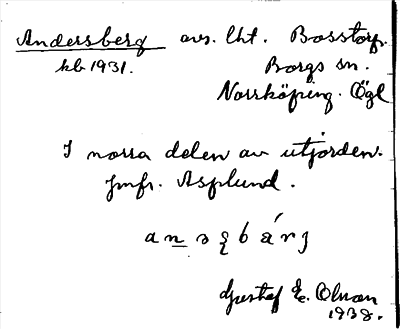 Andersberg avs. lht. Bosstorp.
kb 1931. Borgs sn.
Norrköping. Ögl
I norra delen av utjorden.
Jmfr. Asplund.
Gustaf E. Olson
1938.